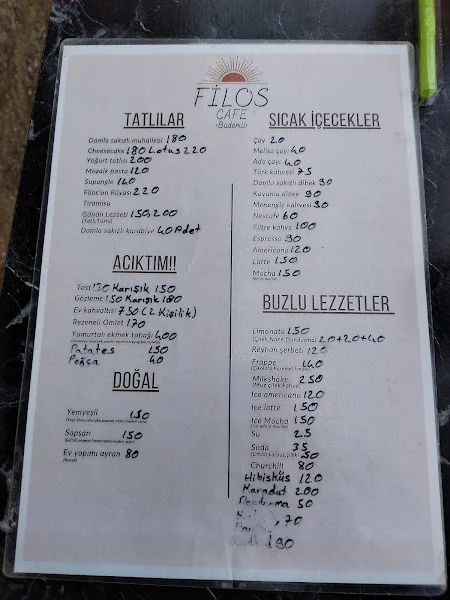 FİLOS
CAFE
Bademli
TATLILAR
Damla sakızlı muhallebi 180
Cheesecake 180 Lotus 220
Yoğurt tatlısı 200
Mozaik pasta 120
Supangle 140
Filos'un Rüyası 220
Tiramisu
Günün Lezzeti 150,200
Damla sakızlı kurabiye 40 Adet
ACIKTIM!!
Tost 130 Karışık 150
Gözleme 150 Karışık 180
Ev kahvaltısı 750 (2 Kişilik)
Rezeneli Omlet 170
Yumurtalı ekmek tabağı 400
Patates 150
Poğça 40
DOĞAL
Yemyeşil 150
Sapsarı 150
Ev yapımı ayran 80
SICAK İÇECEKLER
Çay 20
Melisa çayı 40
Ada çayı 40
Türk kahvesi 75
Damla sakızlı dibek 90
Kavunlu dibek 90
Menengiç kahvesi 90
Nescafe 60
Filtre kahve 100
Espresso 90
Americano 120
Latte 150
Mocha 150
BUZLU LEZZETLER
Limonata 150
(Çilek, Nane, Dondurma) 20+20+40
Reyhan şerbeti 120
Frappe 140
Milkshake 250
(Muz, çilek, kahve)
Ice americano 120
Ice latte 150
Ice Mocha 150
Su 25
Soda 35
50
Churchill 80
Hibisküs 120
Karadut 200
Dondurma 50
70
190